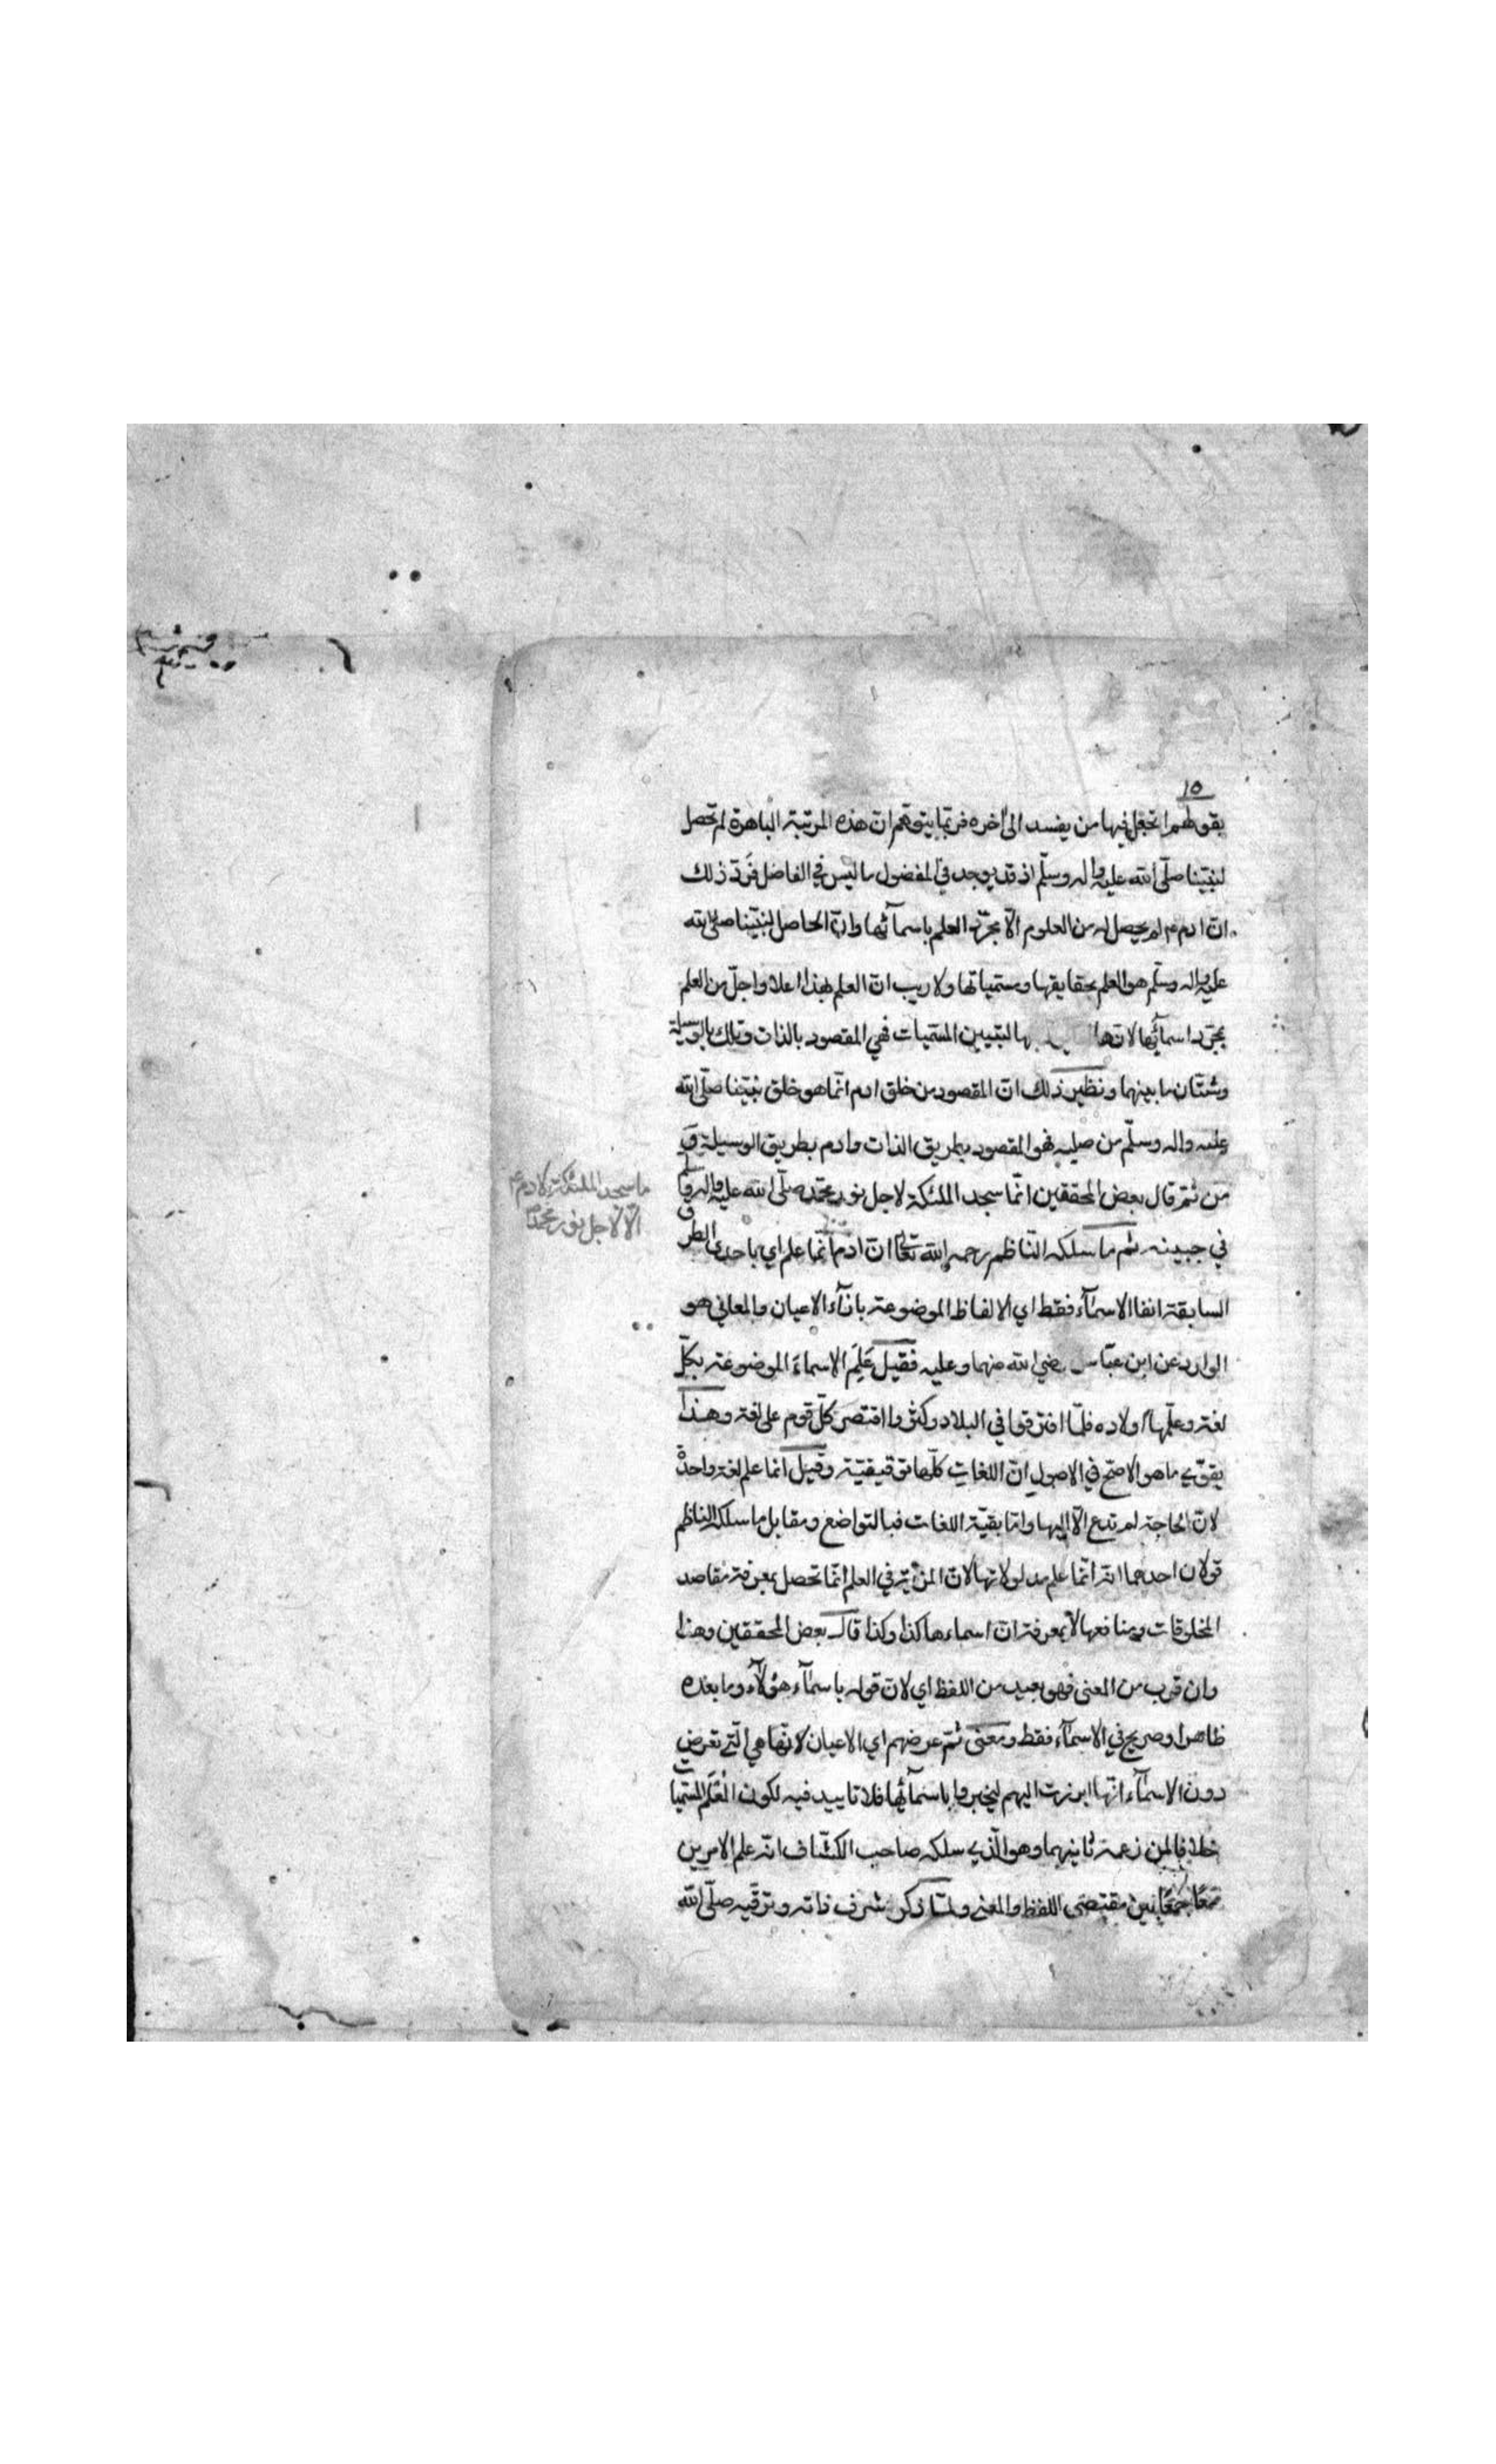 ١٥
بقولهم اتجعل فيها من يفسد الى اخره فربّما يتوهّم انّ هذه المرتبة الباهرة لم تحصل
لنبيّنا صلّى الله عليه واله وسلّم اذ قد يوجد في المفضول ما ليس في الفاضل فردّ ذلك
انّ ادم ع لم يحصل له من العلوم الّا مجرّد العلم باسمآئها وانّ الحاصل لنبيّنا صلى الله
عليه واله وسلّم هو العلم بحقايقها ومسمياتها ولا ريب انّ العلم بهذا اعلا واجلّ من العلم
بمجرّد اسمآئها لانها بها لتبيين المسميات فهي المقصود بالذات وتلك بالوسيلة
وشتّان ما بينهما ونظير ذلك انّ المقصود من خلق ادم انّما هو خلق نبيّنا صلّى الله
عليه واله وسلّم من صلبه فهو المقصود بطريق الذات وادم بطريق الوسيلة و
من ثمّ قال بعض المحققين انّما سجد الملئكة لاجل نور محمّد صلّى الله عليه واله وسلّم
في جبينه ثم ما سلكه النّاظم رحمه الله تعالى انّ ادم انّما علم اي باحدى الطرق
السابقة انفا الاسمآء فقط اي الالفاظ الموضوعة بازآء الاعيان والمعاني هو
الوارد عن ابن عبّاس رضي الله عنهما وعليه فقيل عَلِمَ الاسماءَ الموضوعة بكلّ
لغة وعلّمها اولاده فلمّا افترقوا في البلاد وكثروا اقتصر كلّ قوم على لغة وهذا
يقوّي ما هو الاصحّ في الاصول انّ اللغات كلّها توقيفيّة وقيل انما علم لغة واحدة
لانّ الحاجة لم تدع الّا اليها وامّا بقيّة اللغات فبالتواضع ومقابل ما سلكه الناظم
قولان احدهما انّه انّما علم مدلولاتها لانّ المزيّة في العلم انّما تحصل بمعرفة مقاصد
المخلوقات ومنافعها لا بمعرفة انّ اسماءها كذا وكذا قال بعض المحققين وهذا
وان قرب من المعنى فهو بعيد من اللفظ اي لانّ قوله باسمآء هؤلآء وما بعده
ظاهر او صريح في الاسمآء فقط ومعنى ثمّ عرضهم اي الاعيان لانّها هي الّتي تعرض
دون الاسمآء انّها ابرزت اليهم ليخبروا باسمآئها فلا تاييد فيه لكون المُعَلَّم المسمّيات
خلافا لمن زعمه ثانيهما وهو الّذي سلكه صاحب الكشّاف انّه علم الامرين
معًا جمعًا بين مقتضى اللفظ والمعنى ولمّا ذكر شرف ذاته وترقّيه صلّى الله
ما سجد الملئكة لادم ع
الّا لاجل نور محمّد